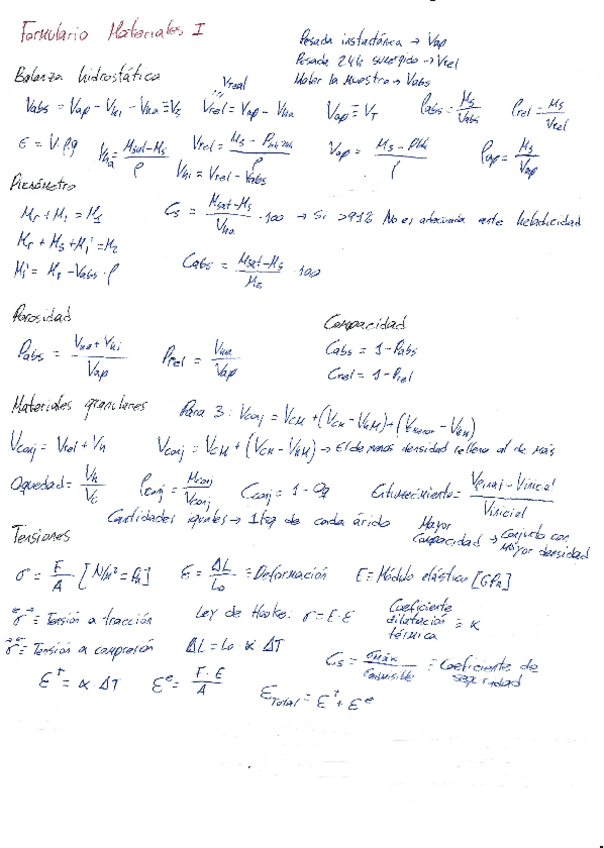 Formulario Materiales I
Pesada instantánea → Vap
Pesada 24h sumergido → Vrel
Moler la muestra → Vabs
Balanza hidrostática
Vreal
Vabs = Vap - Vhi - Vha ≡ Vs   Vrel = Vap - Vha   Vap ≡ VT   ρabs = Ms/Vabs   ρrel = Ms/Vrel
E = V·ρg   Vha = (Msat-Ms)/ρ   Vrel =   Vap =   ρap = Ms/Vap
Vhi = Vrel - Vabs
Picnómetro
Mr + M1 = M1   Cs = (Msat-Ms)/Vha · 100 → Si >91% No es adecuada ante heladicidad
Mr + Ms + Mi' = M2
Cabs = (Msat-Ms)/Ms · 100
Porosidad
Compacidad
Pabs = (Vha + Vhi)/Vap   Prel = Vha/Vap   Cabs = 1 - Pabs
Crel = 1 - Prel
Materiales granulares   Para 3: Vconj = VCM + (VCM - VhM) + (Vmenor - VhM)
Vconj = Vrel + Vh   Vconj = VCM + (VCM - VhM) → El de menos densidad rellena al de más
Oquedad = Vh/Vc   ρconj = Mconj/Vconj   Cconj = 1 - Oq   Entumecimiento = (Vfinal - Vinicial)/Vinicial
Cantidades iguales → 1kg de cada árido   Mayor compacidad → Conjunto con mayor densidad
Tensiones
σ = F/A [N/m² = Pa]   ε = ΔL/L0 ≡ Deformación   E ≡ Módulo elástico [GPa]
σ ≡ Tensión a tracción   Ley de Hooke: σ = E·ε   Coeficiente dilatación térmica ≡ α
σ ≡ Tensión a compresión   ΔL = L0 α ΔT   Cs = σmáx/σadmisible ≡ Coeficiente de seguridad
εᵗ = α·ΔT   εᵉ = F·E/A   εTotal = εᵗ + εᵉ